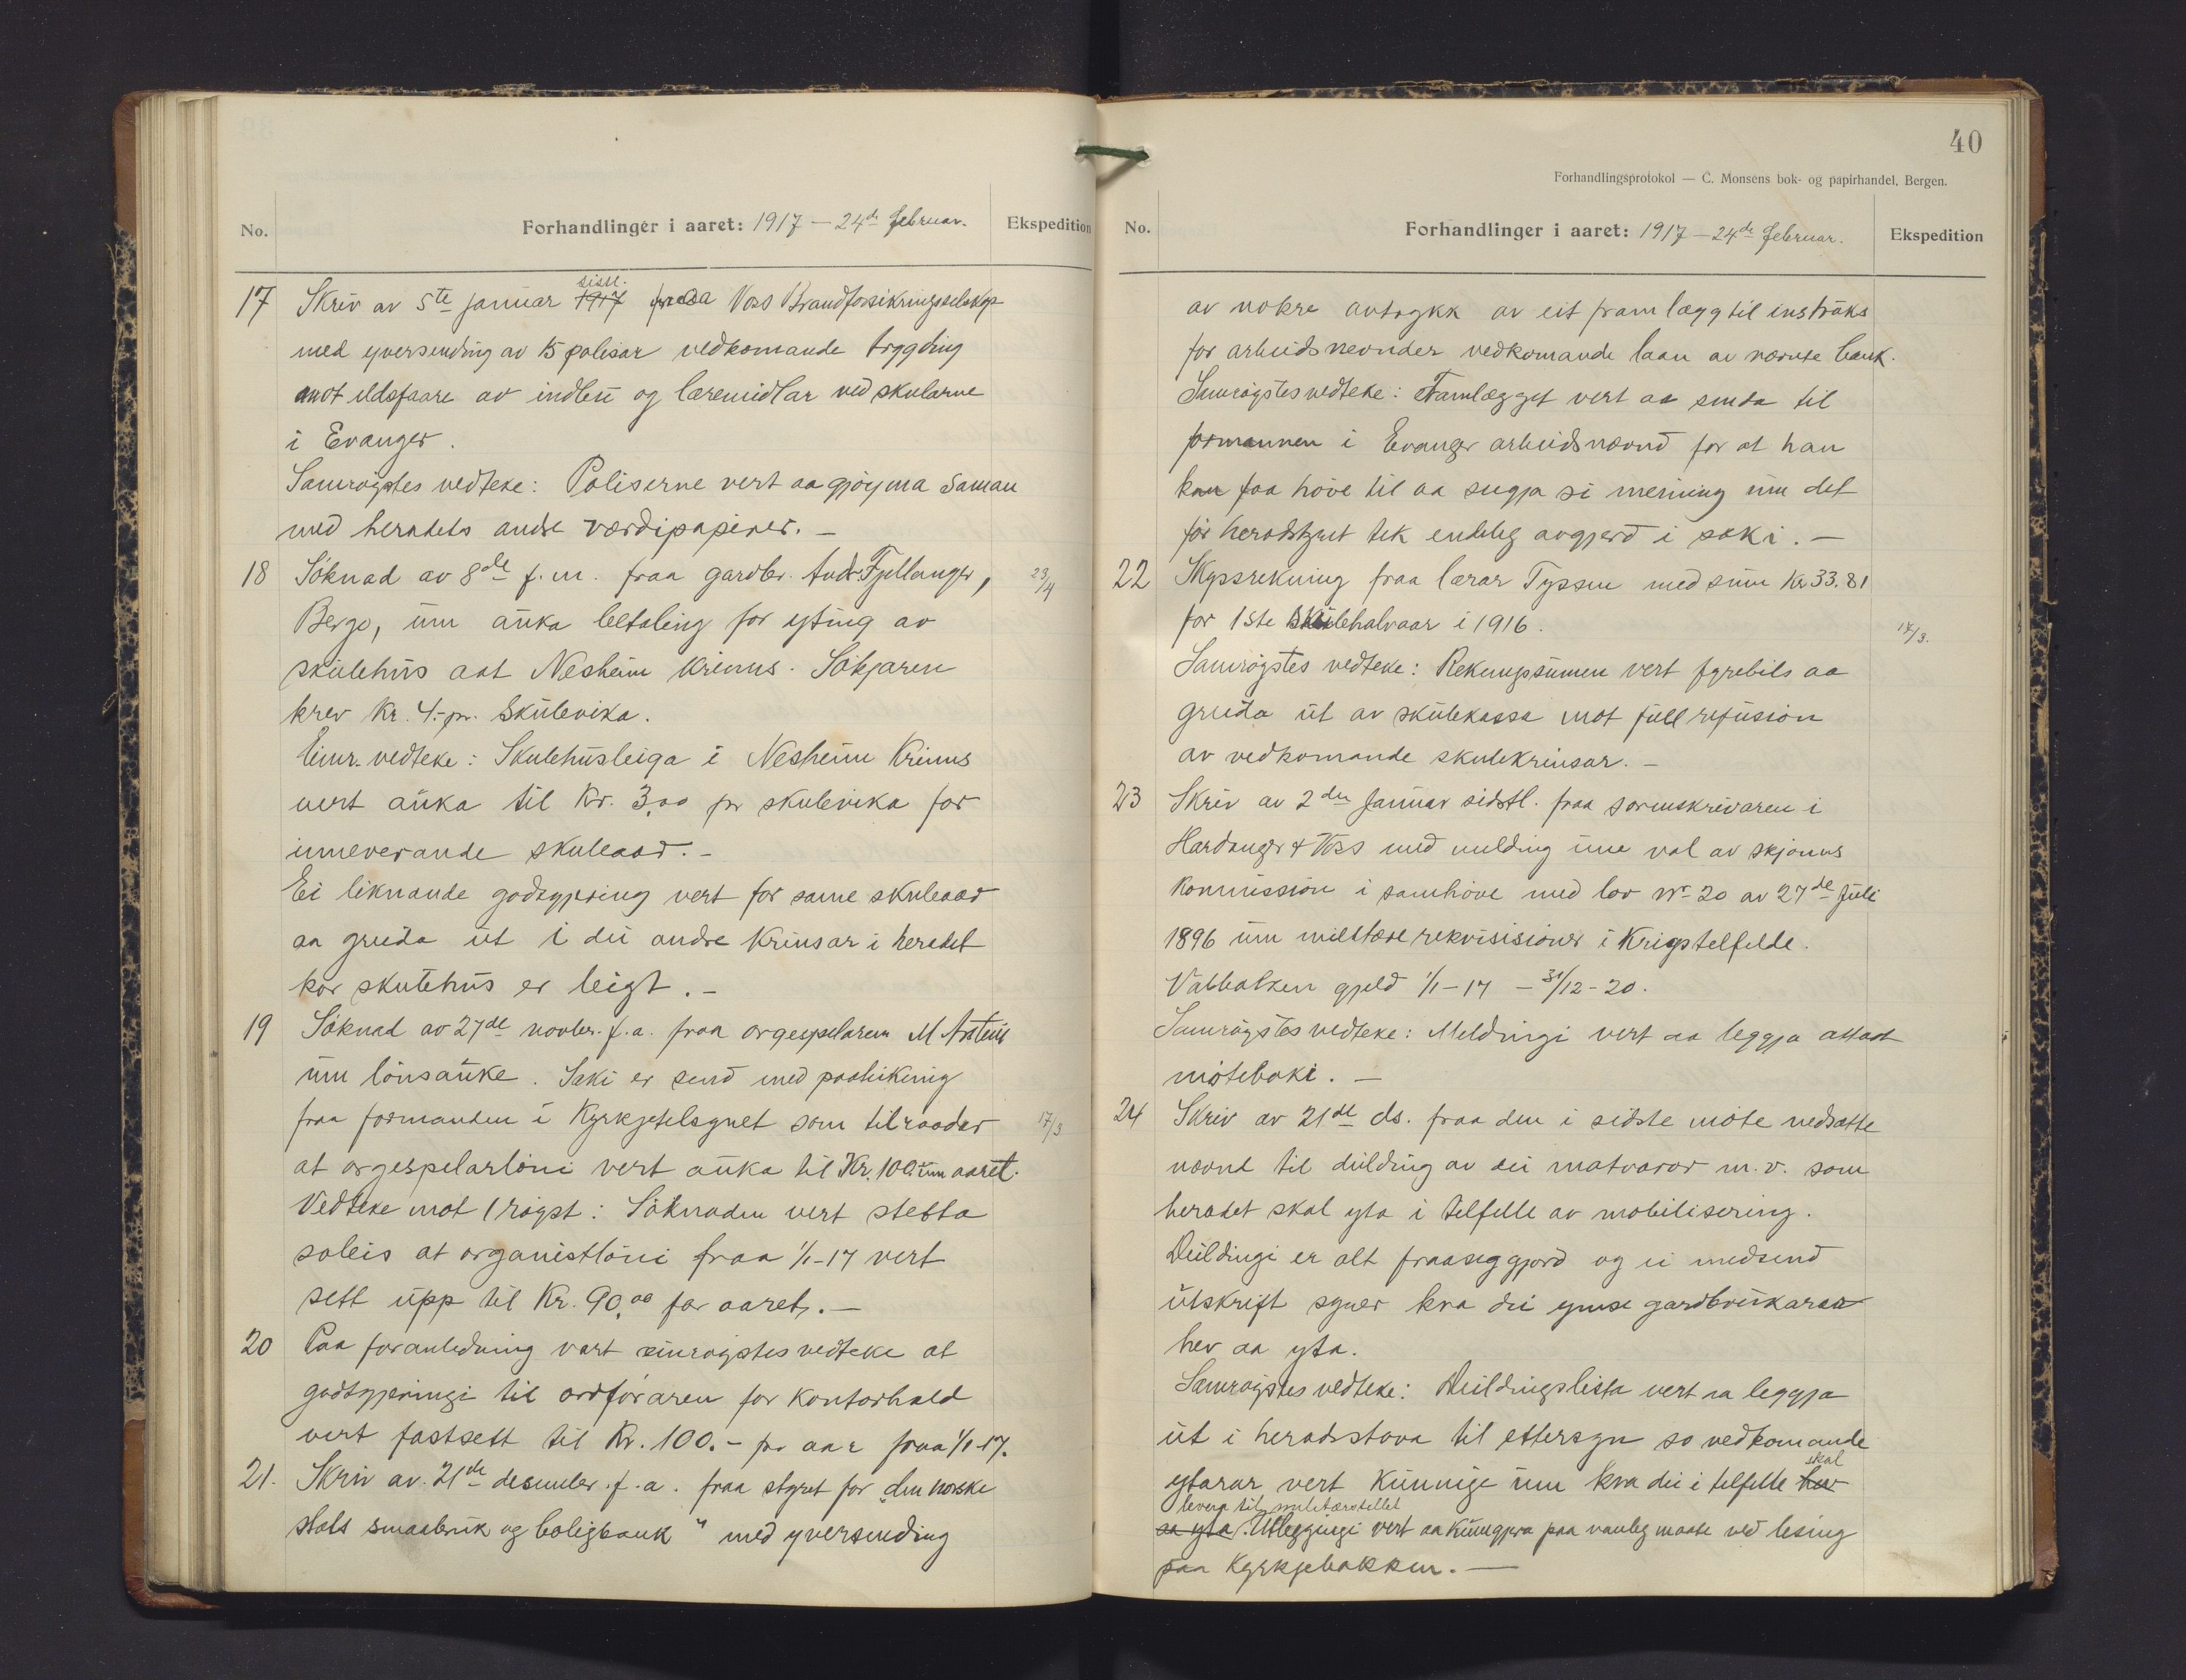 No.
Forhandlinger i aaret: 1917 – 24de februar.
Ekspedition
17 Skriv av 5te januar 1917 sistl. fraa Voss Brandforsikringsselskap
med yversending av 15 polisar vedkomande trygding
mot eldsfaare av indbu og læremidlar ved skularne
i Evanger.
Samrøystes vedteke: Poliserne vert aa gjøyma saman
med heradets andre værdipapirer. –
18 Söknad av 8de f.m. fraa gardbr. Andr. Fjellanger, 23/4
Berge, um auka betaling for yting av
skulehus aat Nesheim krinns. Sökjaren
krev Kr. 4.- pr. skulevika.
Einr. vedteke: Skulehusleiga i Nesheim Krinns
vert auka til Kr. 3,00 pr skulevika for
inneverande skuleaar. –
Ei liknande godtgjering vert for same skuleaar
aa greida ut i dei andre krinsar i heradet
kor skulehus er leigt. –
19 Söknad av 27de novbr. f.a. fraa orgespelaren M
um lönsauke. Saki er send med paateikning
fraa formanden i Kyrkjetilsynet som tilraader 17/3
at orgespelarløni vert auka til Kr. 100.- um aaret.
Vedteke mot 1 røyst: Söknaden vert stetta
soleis at organistløni fraa 1/1-17 vert
sett upp til Kr. 90,00 for aaret. –
20 Paa foranledning vart einrøystes vedteke at
godtgjeringi til ordføraren for kontorhald
vert fastsett til Kr. 100.- pr aar fraa 1/1-17.
21. Skriv av 21de desember f.a. fraa styret for „den norske
stats smaabruk og boligbank" med yversending
40
Forhandlingsprotokol — C. Monsens bok- og papirhandel, Bergen.
No.
Forhandlinger i aaret: 1917 – 24de februar.
Ekspedition
av nokre avtrykk av eit framlægg til instruks
for arbeidsnevnder vedkomande laan av nævnte bank.
Samrøystes vedteke: Framlægget vert aa senda til
formannen i Evanger arbeidsnævnd for at han
kan faa høve til aa segja si meining um det
før heradstyret tek endeleg avgjerd i saki. –
22 Skyssrekning fraa lærar Tyssen med sum Kr 33.81
for 1ste skulehalvaar i 1916. 17/3.
Samrøystes vedteke: Rekningssumen vert fyrebils aa
greida ut av skulekassa mot full refusion
av vedkomande skulekrinsar. –
23 Skriv av 2den Januar sidstl. fraa sorenskrivaren i
Hardanger & Voss med melding um val av skjønns
kommission i samhøve med lov nr 20 av 27de Juli
1896 um militære rekvisisioner i Krigstelfelde.
Valbolken gjeld 1/1-17 – 31/12-20.
Samrøystes vedteke: Meldingi vert aa leggja attaat
møteboki. –
24 Skriv av 21de ds. fraa den i sidste møte nedsatte
nævnd til deilding av dei matvaror m.v. som
heradet skal yta i telfelle av mobilisering.
Deildingi er alt fraaseggjord og ei medsend
utskrift syner kva dei ymse gardbrukarar
hev aa yta.
Samrøystes vedteke: Deildingslista vert aa leggja
ut i heradsstova til ettersyn so vedkomande
ytarar vert kunnige um kva dei i telfelle hev skal
aa yta levera til militærstellet. Utleggjingi vert aa kunngjera paa vanleg maate ved lesing
paa Kyrkjebakken. –